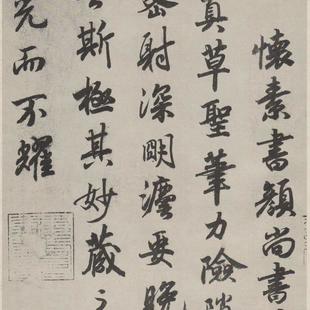 懷素書顏尚書
真草聖筆力險
射深明要晚
斯極其妙藏之
光而不耀